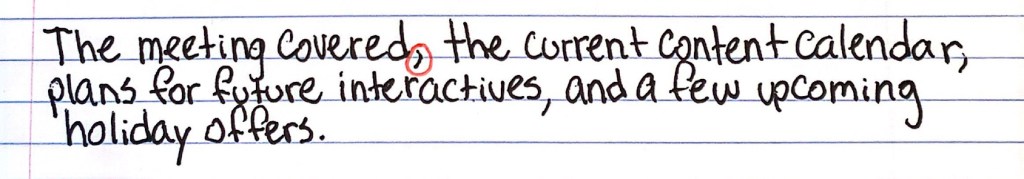 The meeting covered, the current content calendar,
plans for future interactives, and a few upcoming
holiday offers.